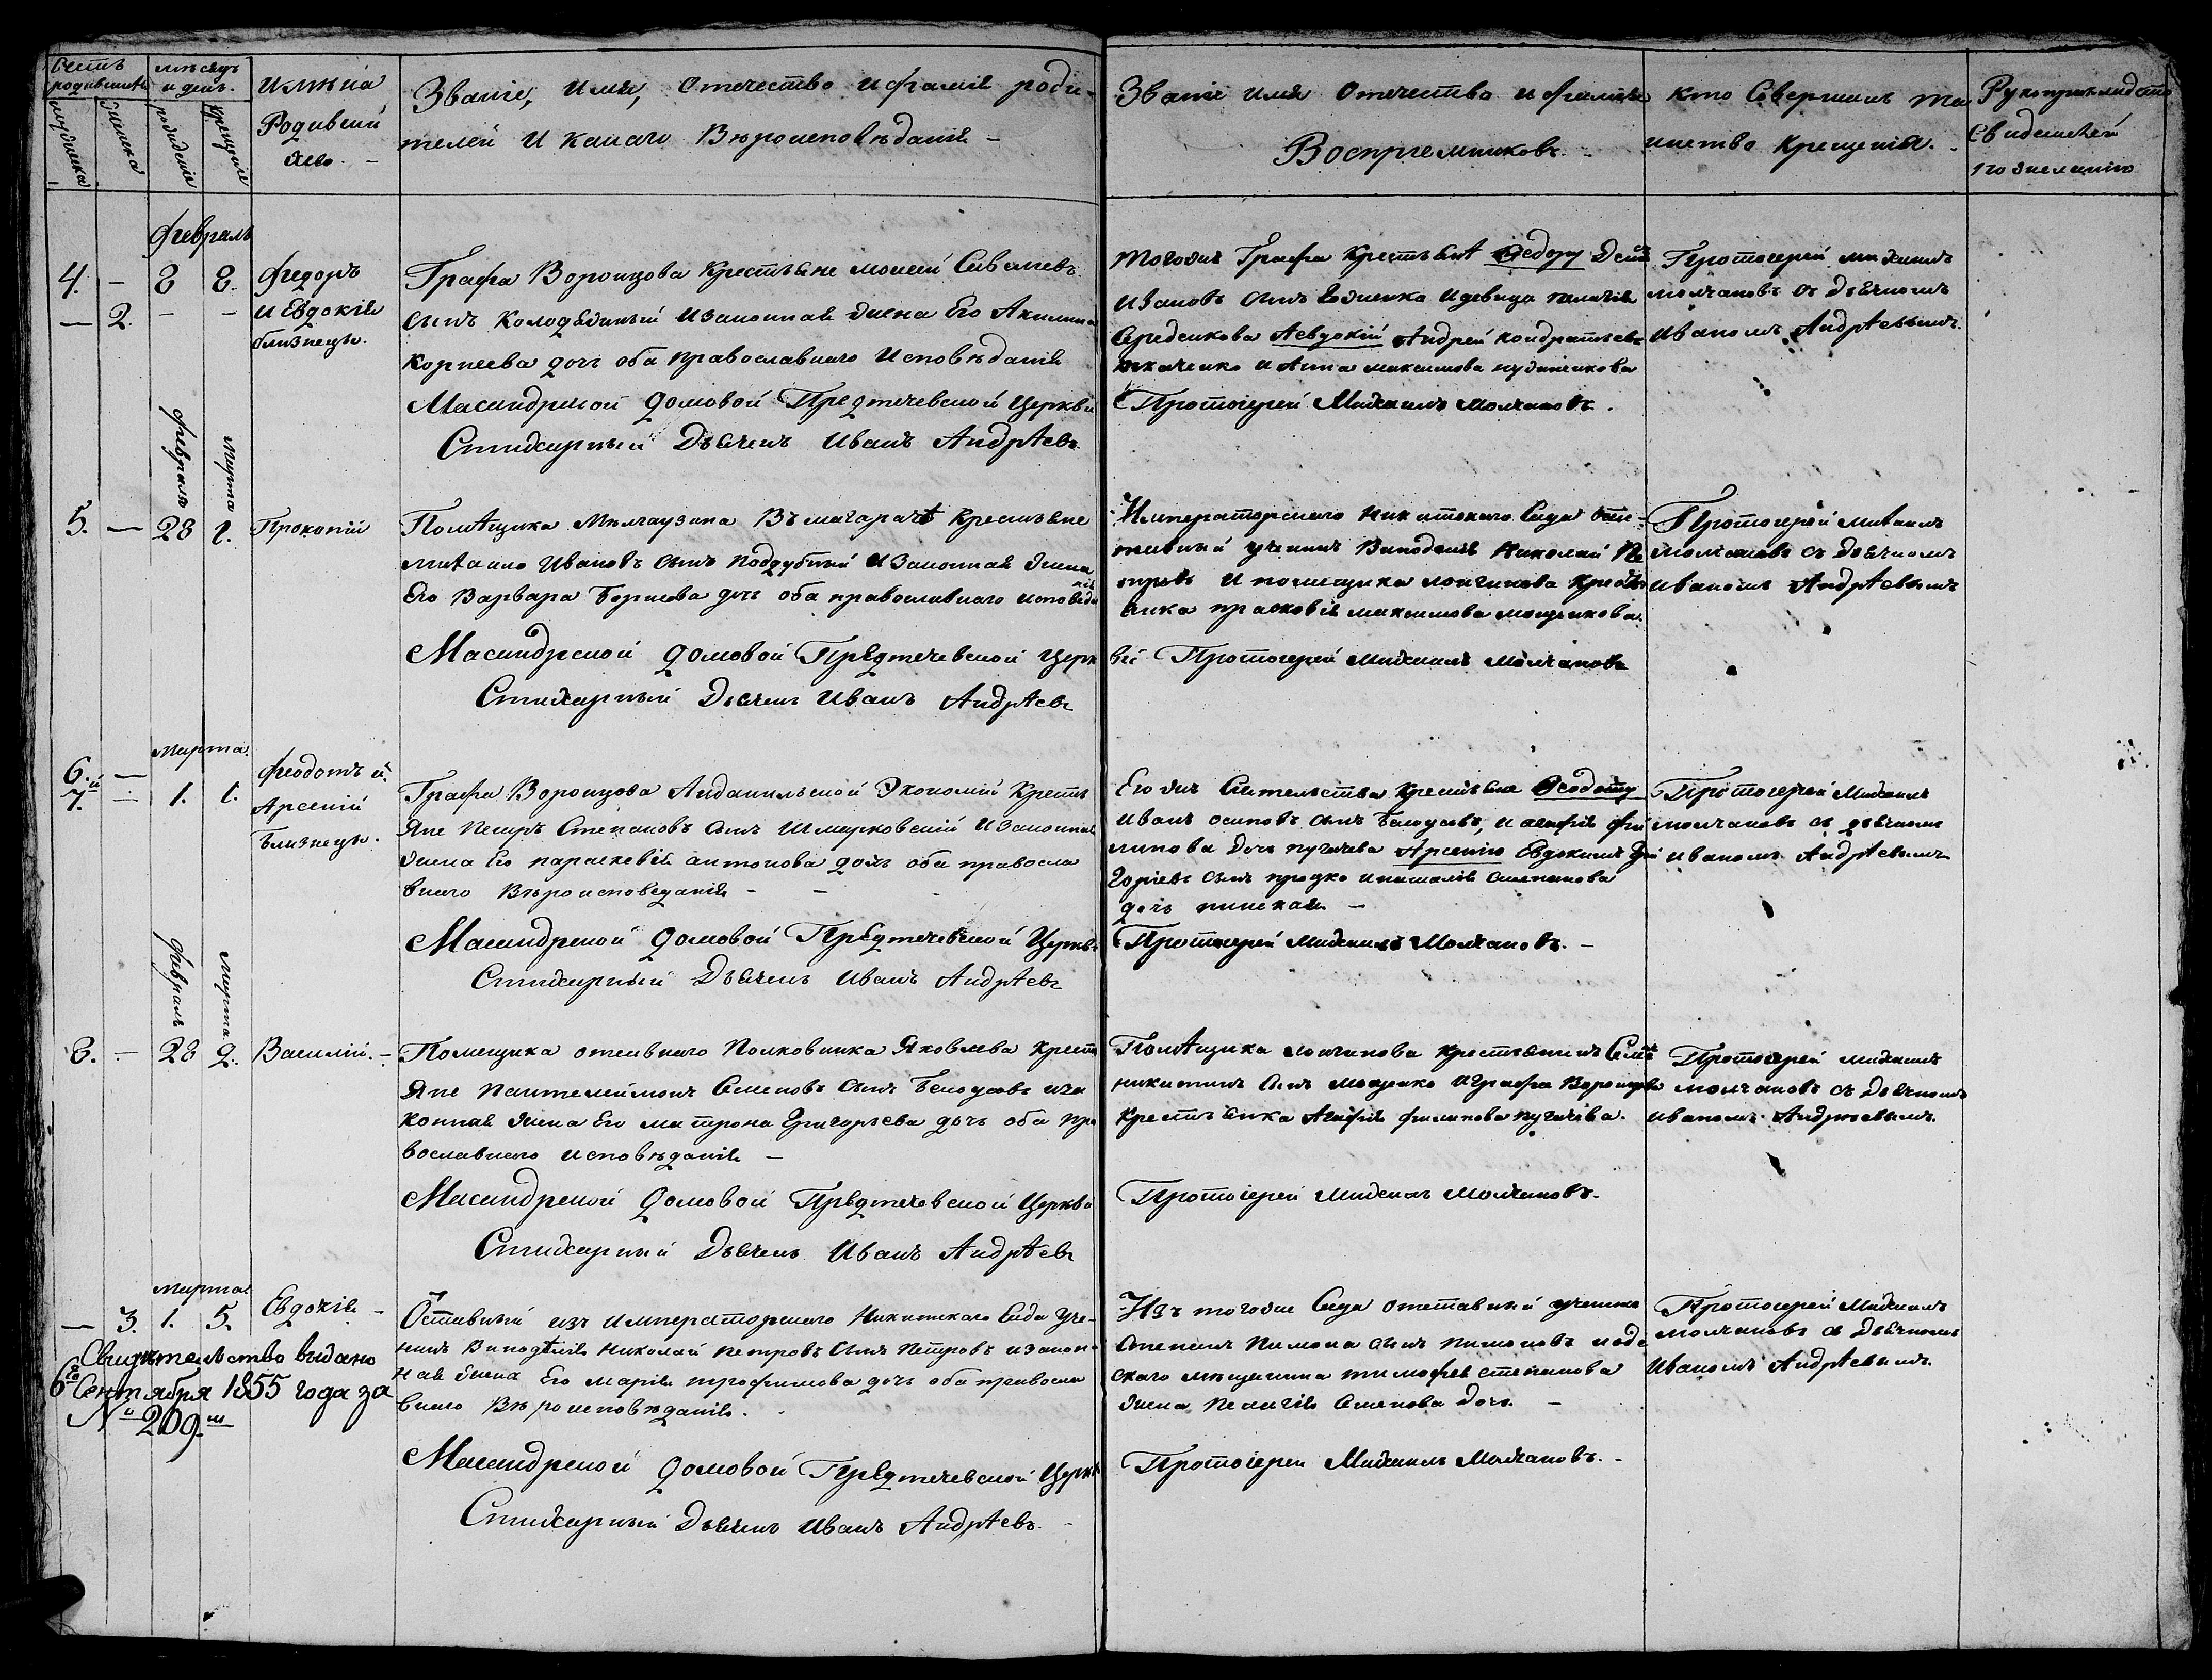 Счетъ родившихся
мужеска
женска
мѣсяцъ и день.
рожденіе
крещеніе
Имѣна
Родивши
хся. –
Званіе, имя, Отечество и фамилія роди-
телей и какаго Вѣроисповѣданія –
Званіе имя Отечество и фамилія
Воспріемниковъ. –
кто Совершилъ та
инство крещенія. –
Рукоприкладство
Свидетелей
по желанію
февраль
4. – 8 8.
– 2. – –
Федоръ
и Евдокія
близнецы.
Графа Воронцова крестьяне моисей Савельевъ
сынъ Колодяжный и законная жена Его Акилина
корнеева дочь оба православнаго Исповѣданія
Масандрской домовой Предтечевской Церкви
Стихарный Дьячекъ Иванъ Андрѣевъ
тогожъ Графа крестьянѣ Федору
Ивановъ сынъ и девица пелагія
Середенкова Аевдокіи Андрей кондратьевъ
ткаченко и Анна максимова
Протоіерей Михаилъ Молчановъ.
Протоіерей михаилъ
молчановъ съ дьячкомъ
Иваномъ Андрѣевымъ.
февраль
марта
5. – 28 1.
Прокопій
Помѣщика Въ магарачѣ крестьяне
Ивановъ сынъ поддубный и законная жена
Его Варвара Борисова дочь оба православнаго исповеда
нія
Масандрской домовой Предтечевской Церк
Стихарный Дьячекъ Иванъ Андрѣевъ
Императорскаго никитскаго Сада
ученикъ Виноделія Николай Пе
тровъ и помещика лонгинова крестья
янка прасковія максимова мощенкова.
ви Протоіерей Михаилъ Молчановъ
Протоіерей михаилъ
молчановъ съ дьячкомъ
иваномъ Андрѣевымъ
марта
6. –
7. – 1. 1.
Феодотъ и
Арсеній
близнецы.
Графа Воронцова Айданильской Экономіи Кресть
яне петръ Степановъ сынъ Шмарковскій и законная
жена Его параскевія антонова дочь оба правосла
внаго Вѣроисповеданія – – –
Масандрской домовой Предтечевской Церкв
Стихарный Дьячекъ Иванъ Андрѣевъ
Его жъ Сіятельства крестьяне Феодоту
иванъ осиповъ сынъ Белоусовъ, и агафія фи
липова дочь пугачева Арсенію Евдокимъ Гри
горіевъ сынъ и наталія степанова
дочь –
Протоіерей Михаилъ Молчановъ. –
Протоіерей Михаилъ
молчановъ съ дьячкомъ
иваномъ Андрѣевымъ
февраль
марта
8. – 28 2.
Василій. –
Помещика отставнаго Полковника Яковлева кресть
яне пантелеймонъ Семеновъ сынъ Белоусовъ и за
конная жена Его матрона Григорьева дочь оба пра
вославнаго исповѣданія –
Масандрской домовой Предтечевской Церкви
Стихарный Дьячекъ Иванъ Андрѣевъ
Помѣщика лонгинова крестьянинъ
никитинъ сынъ мощенко и Графа Воронцова
крестьянка Агафія филипова пугачева.
Протоіерей Михаилъ Молчановъ.
Протоіерей михаилъ
молчановъ съ дьячкомъ
иваномъ Андрѣевымъ.
марта
– 3. 1. 5.
Евдокія –
Свидѣтельство выдано
6го Сентября 1855 года за
№ 209.мъ
Отставный изъ императорскаго Никитскаго Сада уче-
никъ Винодѣлія николай петровъ сынъ Петровъ и закон
ная жена Его марія трофимова дочь оба правосла
внаго Вѣроисповѣданія.
Масандрской домовой Предтечевской Церкв
Стихарный Дьячекъ Иванъ Андрѣевъ. –
Изъ тогоже Сада отставный ученикъ
Степанъ Пимона сынъ пимоновъ и оде
скаго мещанина тимофея степанова
жена пелагія Семенова дочь. –
Протоіерей Михаилъ Молчановъ. –
Протоіерей Михаилъ
молчановъ съ дьячкомъ
Иваномъ Андрѣевымъ.